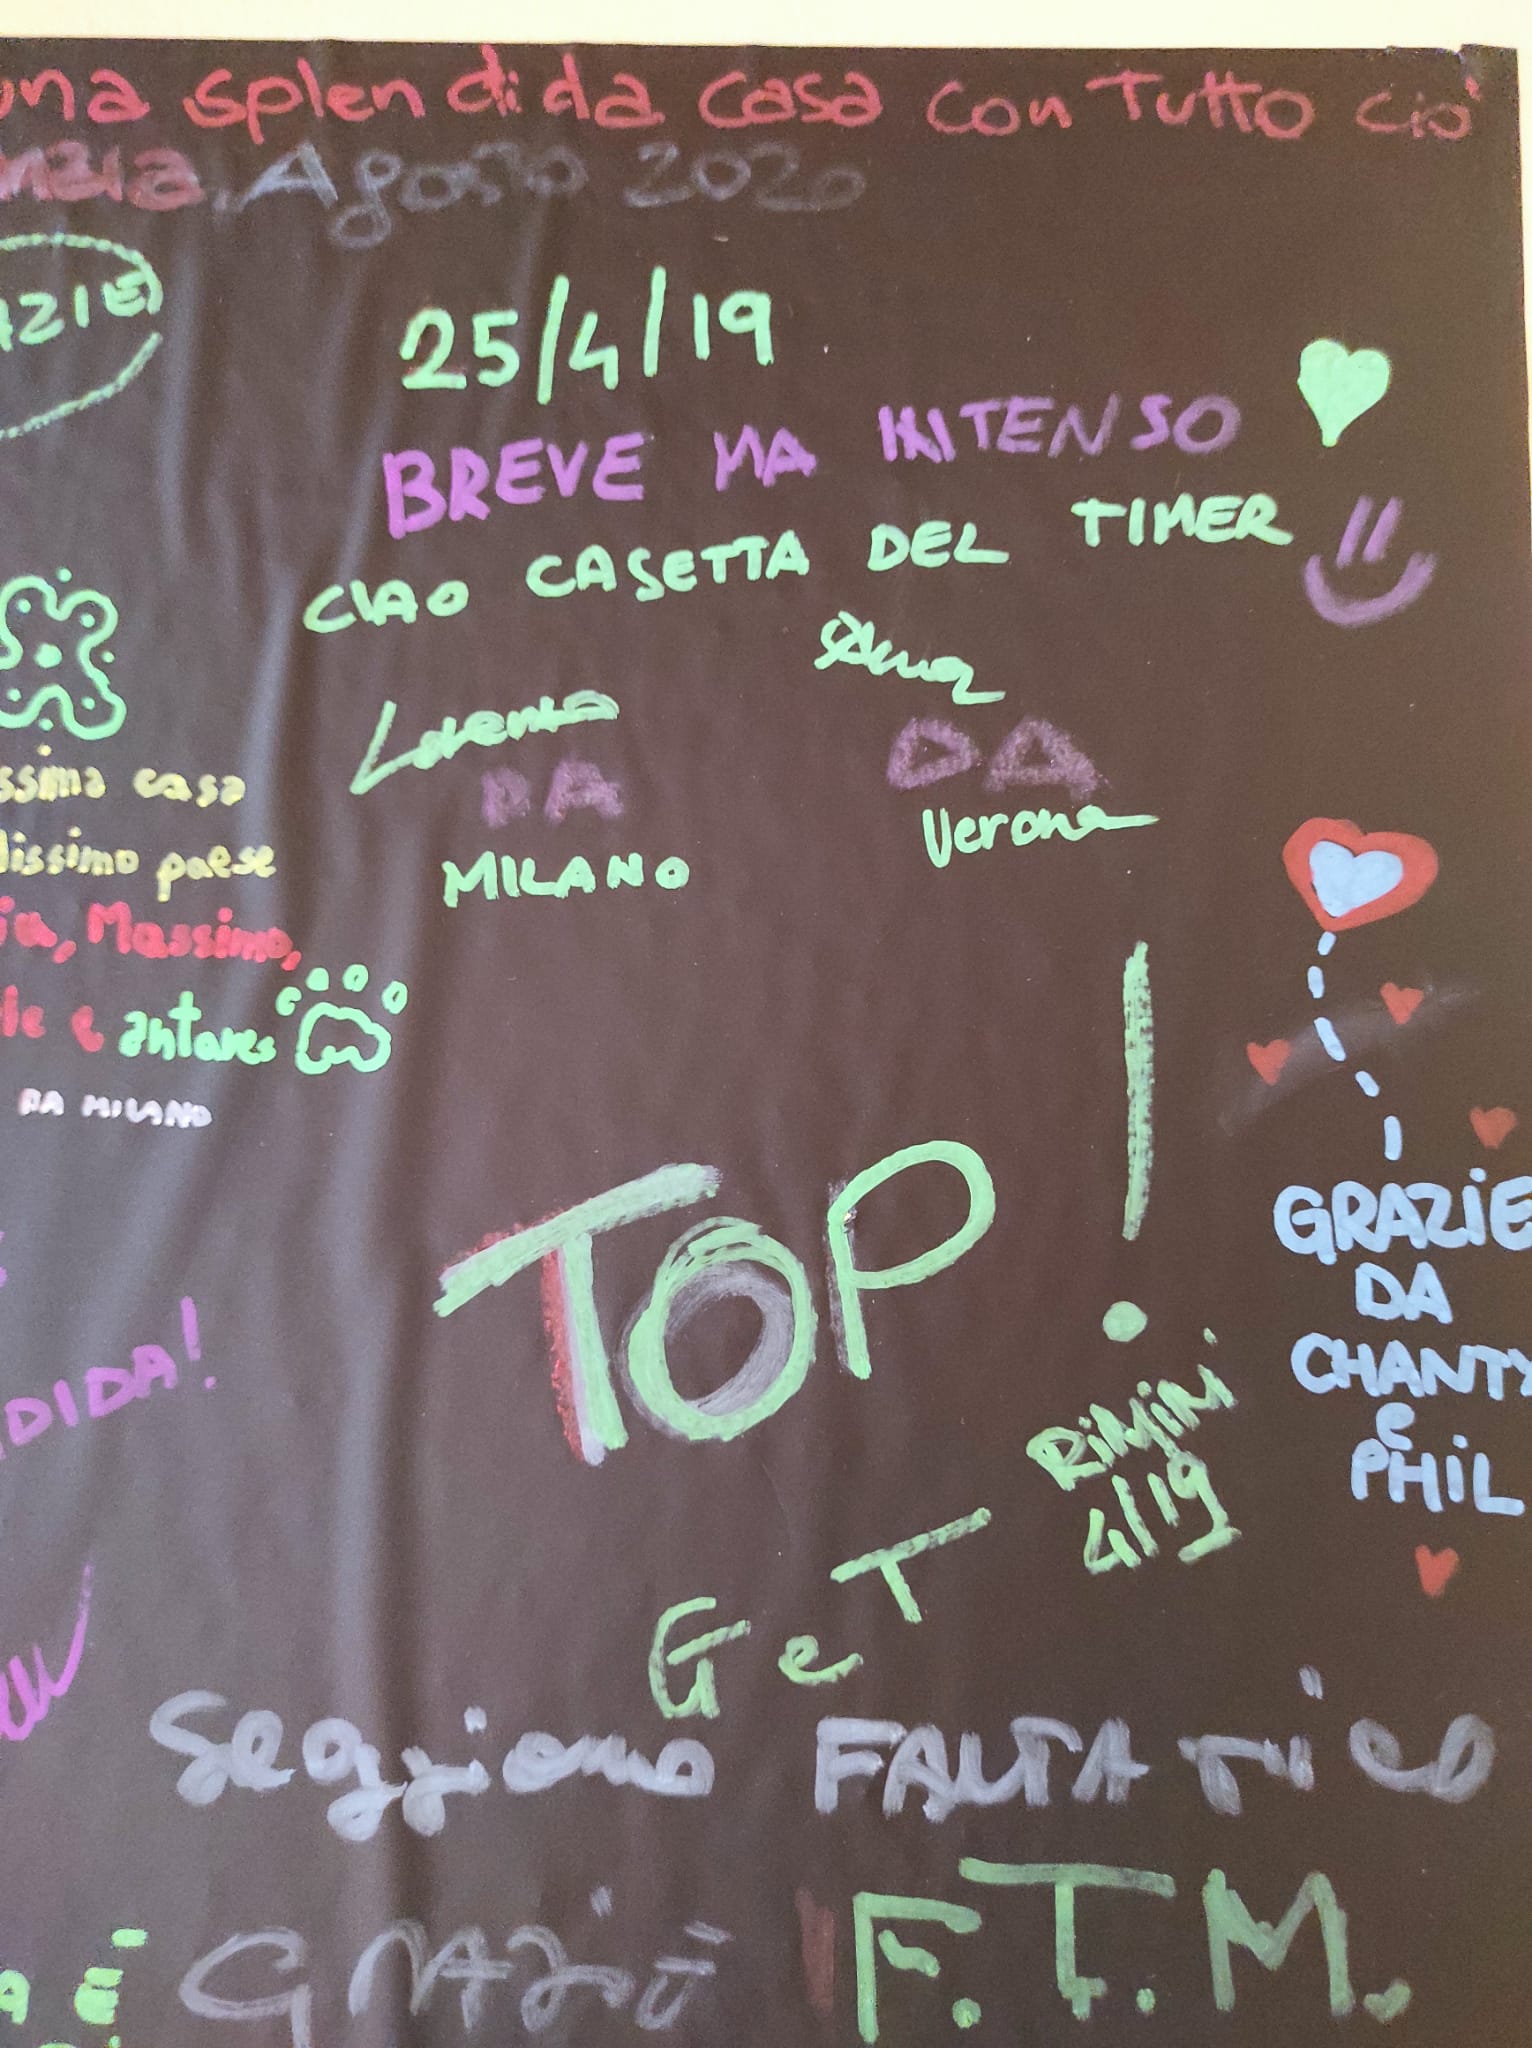 una splendida casa con Tutto ciò
Agosto 2020
25/4/19
BREVE MA INTENSO
CIAO CASETTA DEL TIMER
Lorenza
DA
MILANO
DA
Verona
casa
paese
Massimo,
e antares
DA MILANO
TOP!
RiMiNi
4/19
G e T
GRAZIE
DA
CHANTY
e
PHiL
Soggiorno FANTASTICO
GRAZIE F.T.M.